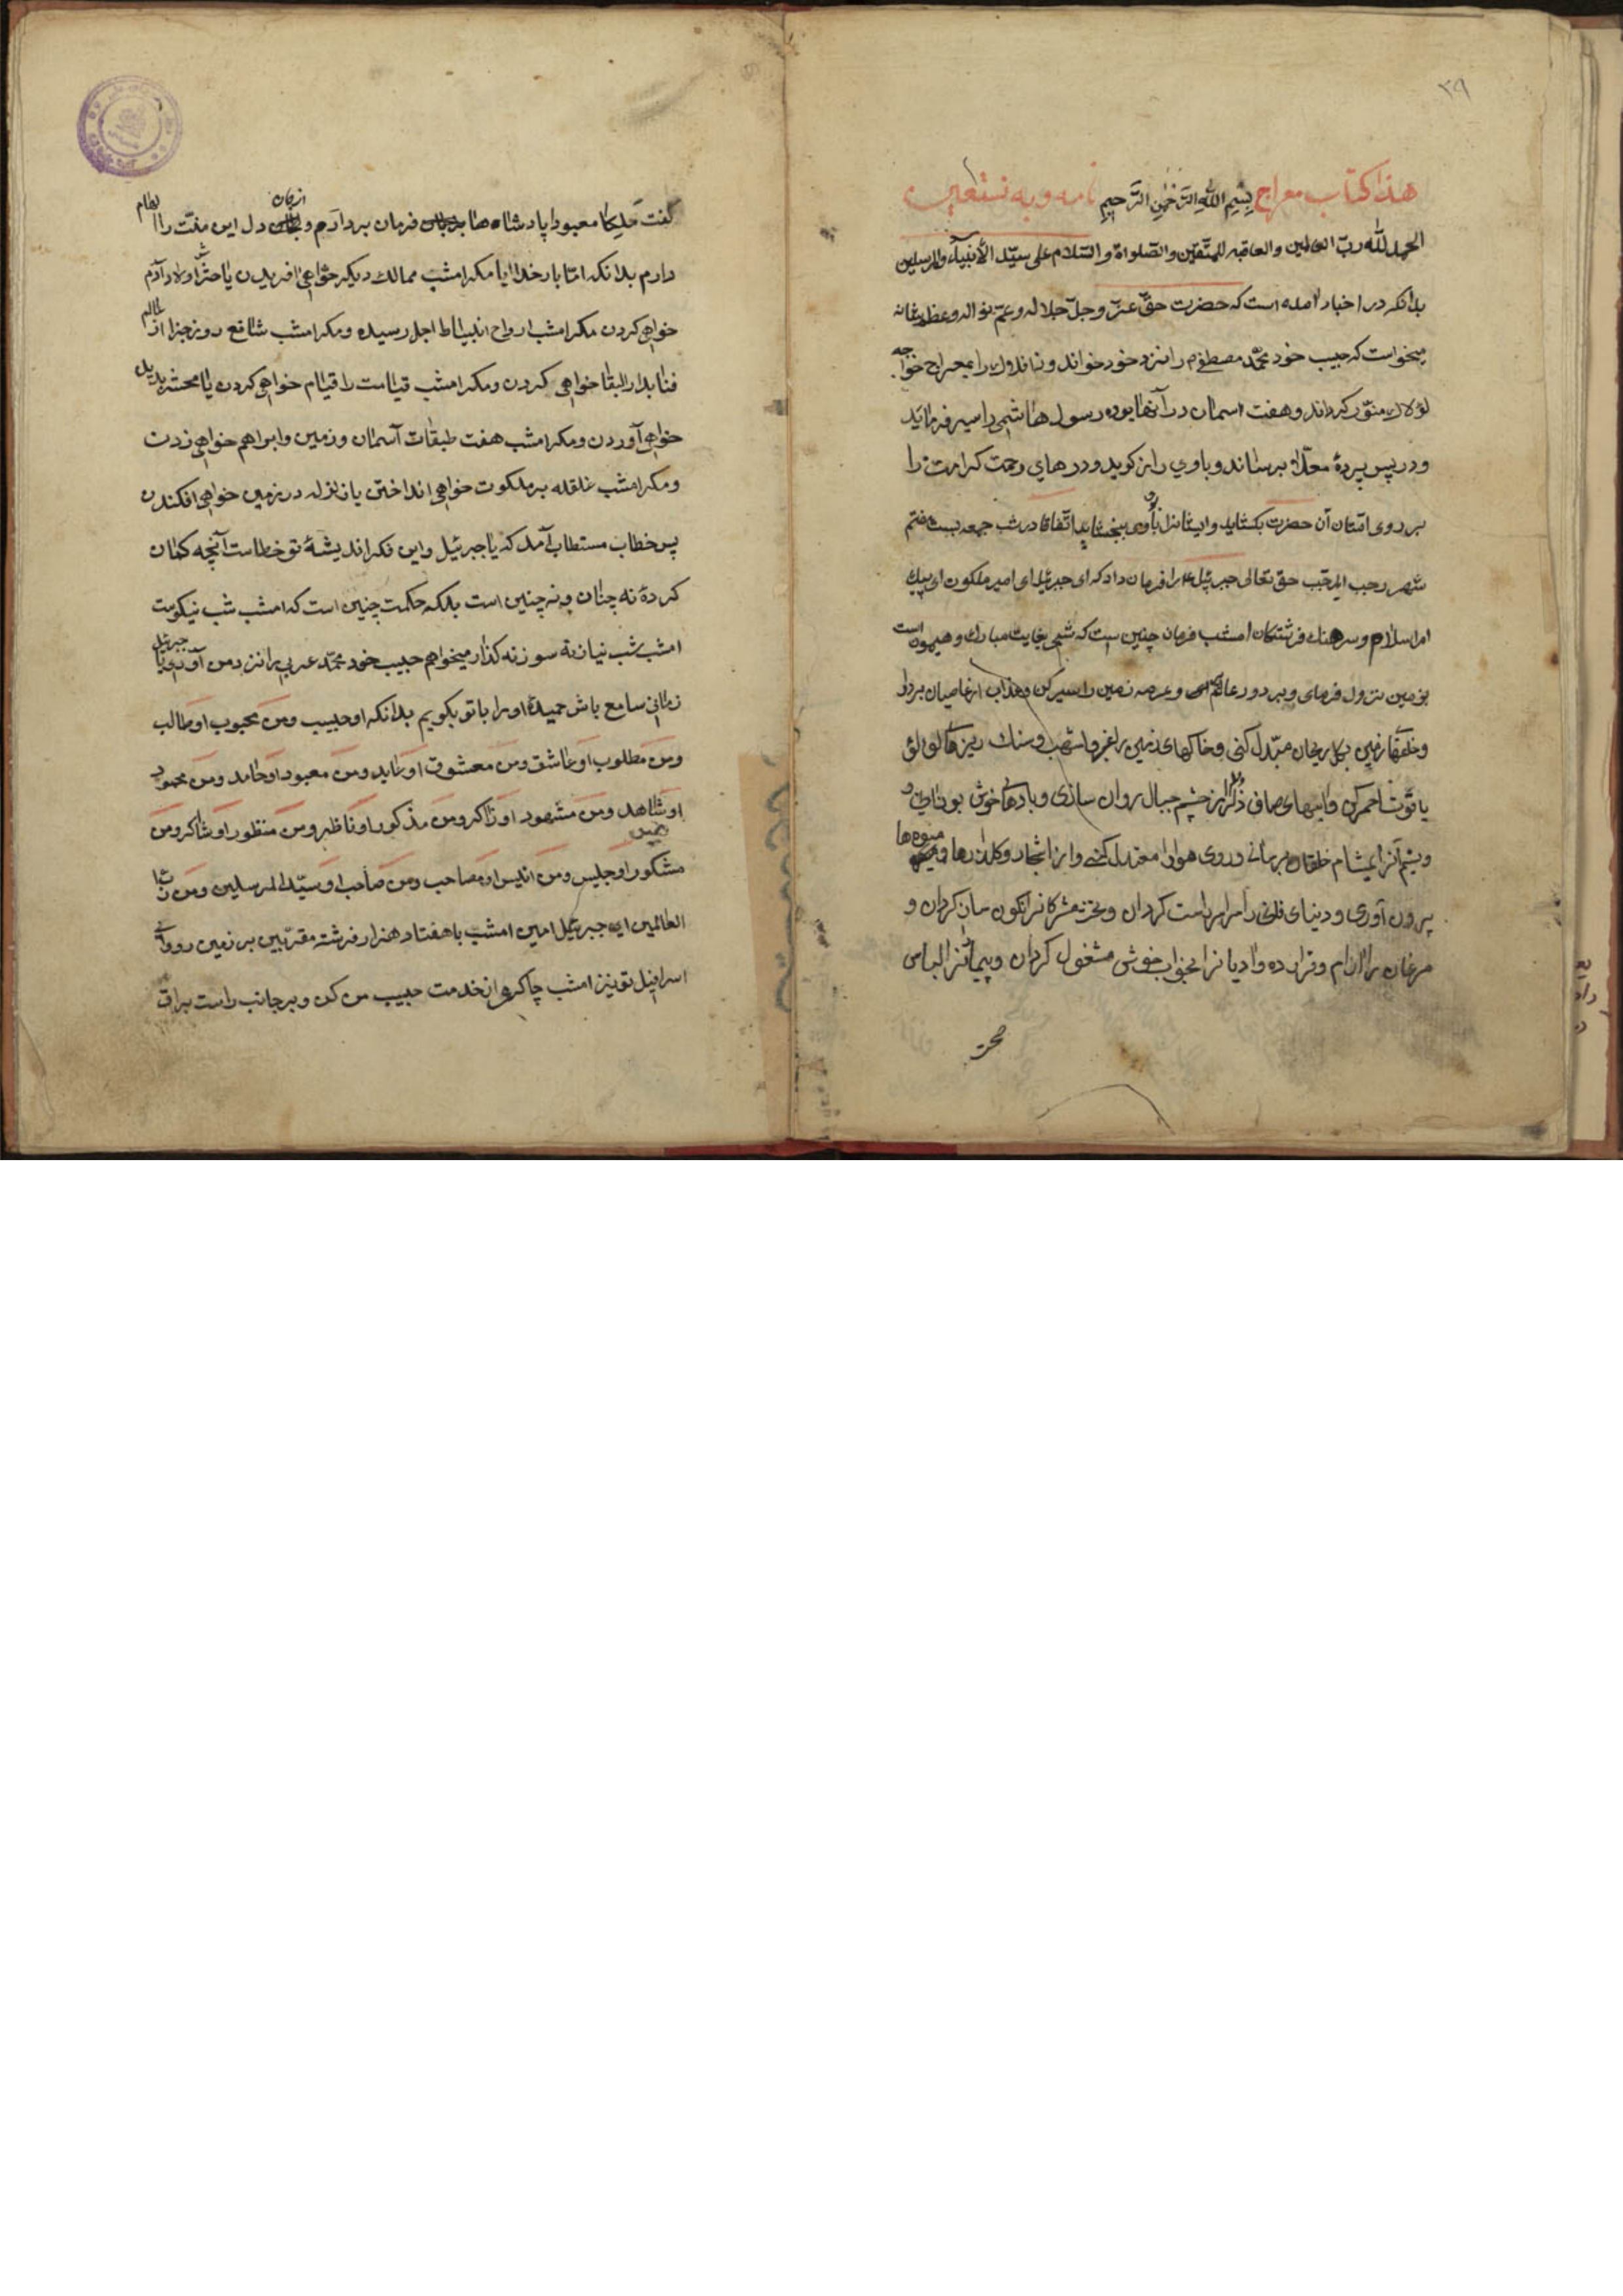 ۳۹
هذا کتاب معراج بسم الله الرحمن الرحیم نامه و به نستعین
الحمد لله ربّ العالمین والعاقبه للمتّقین والصّلواة والسّلام علی سیّد الأنبیآء والمرسلین
بدانکه در اخبار آمده است که حضرت حقّ عزّ وجلّ جلاله و عمّ نواله و عظم شانه
میخواست که حبیب خود محمّد مصطفی م را بنزد خود خواند و را بمعراج خواجه
لولاک منوّر کرداند و هفت اسمان در آنها بوده رسول هاشمی را سیر فرماید
و در پس پردهٔ معلّا برساند و باوی راز کوید و درهای رحمت کرامت را
بر روی امّتان آن حضرت بکشاید و ایشانرا باوی ببخشاید اتّفاقا در شب جمعه بیست هفتم
شهر رجب المرجّب حق تعالی جبرئیل ع را فرمان داد که ای جبرئیل ای امیر ملکوت ای پیک
اسلام و سرهنک فرشتکان امشب فرمان چنین است که شبی بغایت مبارک و همیون است
بزمین نزول فرمای و بر دور عالم و عرصه زمین را سیر کن و عذاب از عاصیان بردار
و زمین بکل ریحان مبدّل کنی و خاکهای زمین را اشهب و سنک ریزها لؤلؤ
یاقوت احمر کن و ابهای صاف از چشم جبال روان سازی و بادهای خوش بوزان و
بمشام خلقان برسانی و روی هوا را معتدل کنی و از اشجار و کلذارها میوه‌ها
برون آوری و دنیای فانی را راست کردان و تخت مشرکانرا نکون سار کردان و
مرغان را ارام و قرار ده و ادیانرا بخواب خوش مشغول کردان و الباس
صح
گفت ملکا معبودا پادشاه ها از جان فرمان بردارم و دل این منّت را
دارم بدانکه امّا بار خدایا مکر امشب ممالک دیکر خواهی افریدن یا حشر اولاد آدم
خواهی کردن مکر امشب ارواح انبیا اجل رسیده و مکر امشب شافع روز جزا از عالم
فنا بدار البقا خواهی کردن و مکر امشب قیامت را قیام خواهی کردن یا محشر پدید
خواهی آوردن و مکر امشب هفت طبقات آسمان و زمین و ابراهم خواهی زدن
و مکر امشب غلقله بر ملکوت خواهی انداختن یا زلزله در زمین خواهی افکندن
پس خطاب مستطاب آمد که یا جبرئیل این فکر اندیشهٔ تو خطاست آنچه کمان
کردهٔ نه چنان و نه چنین است بلکه حکمت چنین است که امشب شب نیکوست
امشب شب نیاز نه سوز نه کداز میخواهم حبیب خود محمّد عربی را نزد من آوری یا جبرئیل
زمانی سامع باش او را با تو بکویم بدانکه او حبیب و من محبوب او طالب
و من مطلوب او عاشق و من معشوق او عابد و من معبود او حامد و من محمود
او شاهد و من مشهود او ذاکر و من مذکور او ناظر و من منظور او شاکر و من
مشکور او جلیس و من انیس او مصاحب و من صاحب او سیّد المرسلین و من ربّ
العالمین ای جبرئیل امین امشب با هفتاد هزار فرشته مقرّبین بر زمین رو و ای
اسرافیل تو نیز امشب چاکری از خدمت حبیب من کن و بر جانب راست براق